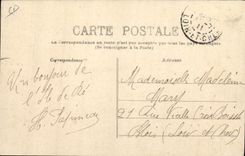 CARTE POSTALE
La Correspondance au recto n'est pas acceptée par tous les pays étrangers
(Se renseigner à la Poste)
Un bonjour de
l'Ile de Ré
Mademoiselle Madeleine
Mary
21 Rue Vieille
Blois (Loir et Cher)